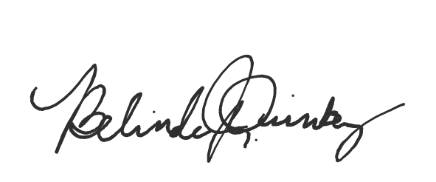 Belinda J. Quimby